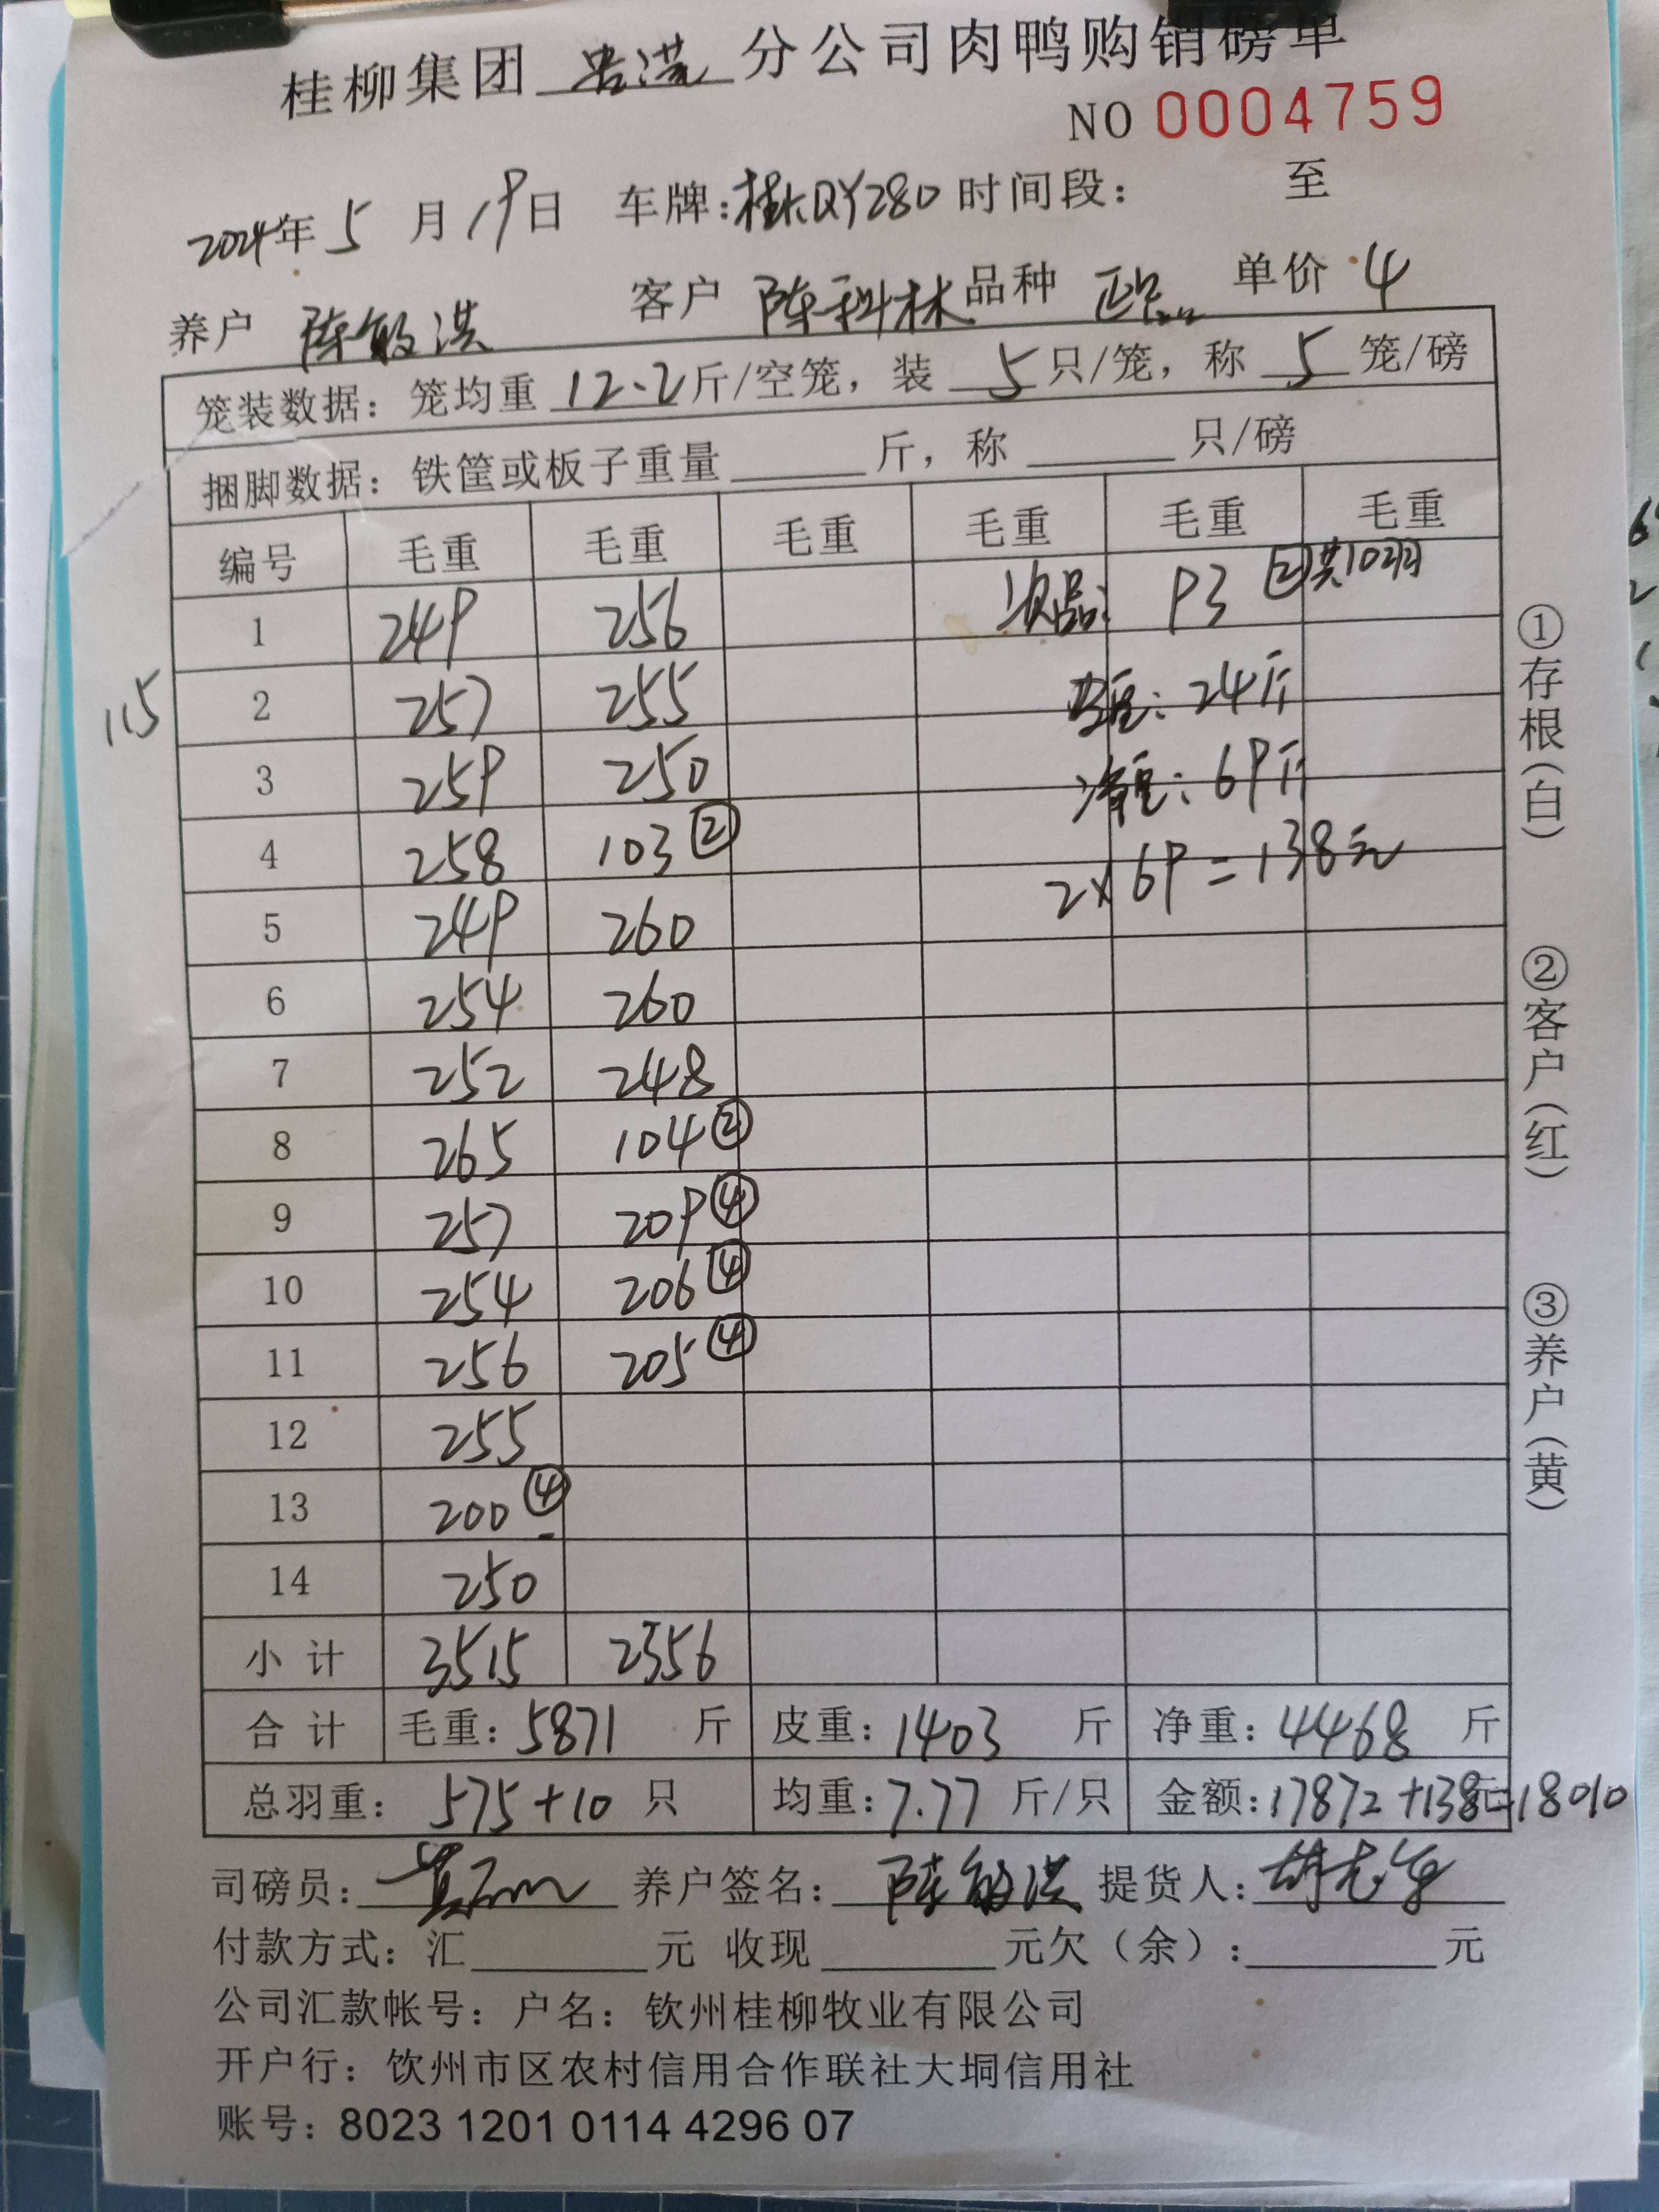 桂柳集团 分公司肉鸭购销磅单
NO 0004759
2024年 5 月 19日 车牌:桂KQY280 时间段: 至
养户 陈敏洪 客户 陈科林 品种 正品 单价 4
笼装数据:笼均重 12.2斤/空笼,装 5只/笼,称 5 笼/磅
捆脚数据:铁筐或板子重量 斤,称 只/磅
编号 毛重 毛重 毛重 毛重 毛重 毛重
1 249 256 次品: 93 ② 共10羽
115 2 257 255 皮重: 24斤
3 259 250 净重: 69斤
4 258 103② 2×69=138元
5 249 260
6 254 260
7 252 248
8 265 104②
9 257 209④
10 254 206④
11 256 205④
12 255
13 200④
14 250
小计 3515 2356
合计 毛重:5871 斤 皮重:1403 斤 净重:4468 斤
总羽重: 575+10 只 均重:7.77 斤/只 金额:17872+138=18010
司磅员: 养户签名: 陈敏洪 提货人:
付款方式:汇 元 收现 元欠(余): 元
公司汇款帐号:户名:钦州桂柳牧业有限公司
开户行:饮州市区农村信用合作联社大垌信用社
账号:8023 1201 0114 4296 07
①存根(白) ②客户(红) ③养户(黄)